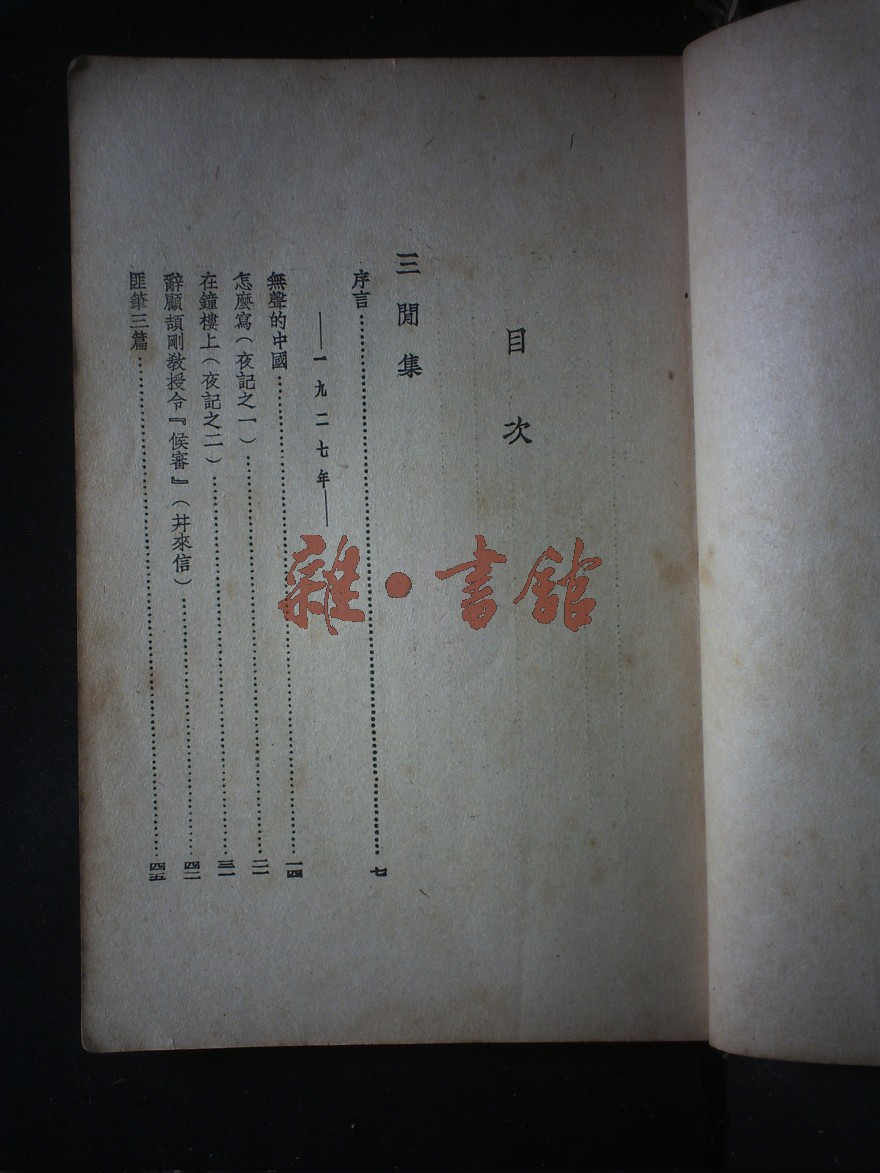 目次
三閒集
序言……七
——一九二七年——
無聲的中國……一四
怎麼寫（夜記之一）……二一
在鐘樓上（夜記之二）……三一
辭顧頡剛教授令『候審』（并來信）……四二
匪筆三篇……四五
雜·書館